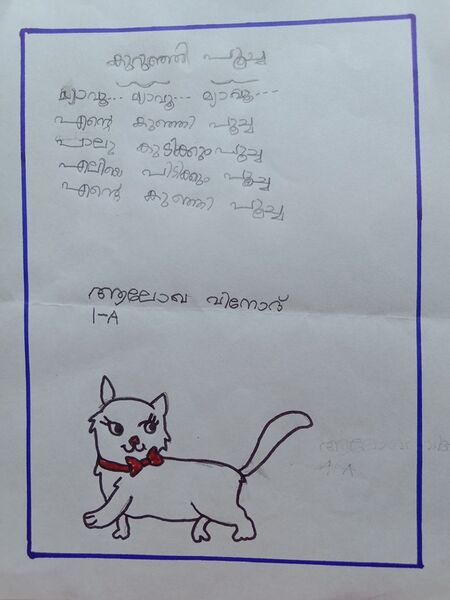 കുറുഞ്ഞി പൂച്ച
മ്യാവൂ... മ്യാവൂ... മ്യാവൂ...
എന്റെ കുഞ്ഞി പൂച്ച
പാലു കുടിക്കും പൂച്ച
എലിയെ പിടിക്കും പൂച്ച
എന്റെ കുഞ്ഞി പൂച്ച
ആലോഖ വിനോദ്
1-A
1-A